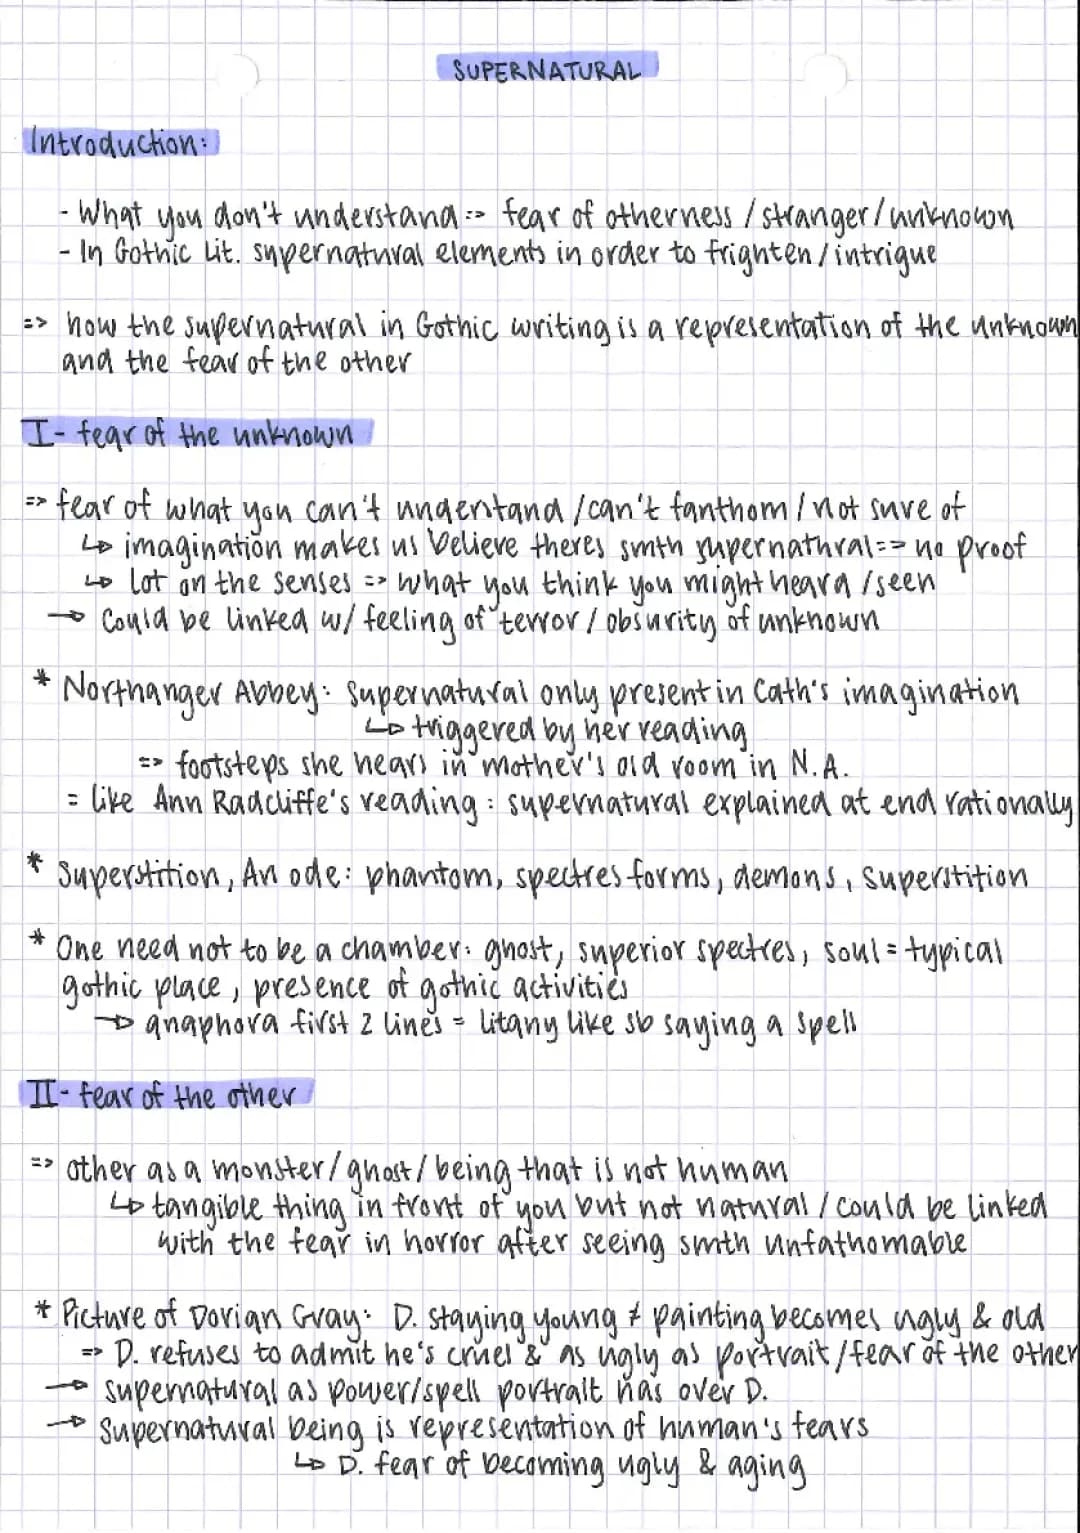 SUPERNATURAL
Introduction:
- What you don't understand => fear of otherness / stranger / unknown
- In Gothic Lit. supernatural elements in order to frighten / intrigue
=> how the supernatural in Gothic writing is a representation of the unknown
and the fear of the other
I - fear of the unknown
=> fear of what you can't understand / can't fanthom / not sure of
↳ imagination makes us believe theres smth supernatural => no proof
↳ Lot on the senses => what you think you might heard / seen
→ Could be linked w/ feeling of terror / obsurity of unknown
* Northanger Abbey: Supernatural only present in Cath's imagination
↳ triggered by her reading
=> footsteps she hears in mother's old room in N.A.
= like Ann Radcliffe's reading : supernatural explained at end rationally
* Superstition, An ode: phantom, spectres forms, demons, Superstition
* One need not to be a chamber: ghost, superior spectres, soul = typical
gothic place, presence of gothic activities
→ anaphora first 2 lines = litany like sb saying a spell
II - fear of the other
=> other as a monster / ghost / being that is not human
↳ tangible thing in front of you but not natural / could be linked
with the fear in horror after seeing smth unfathomable
* Picture of Dorian Gray: D. staying young ≠ painting becomes ugly & old
=> D. refuses to admit he's cruel & as ugly as portrait / fear of the other
→ supernatural as power/spell portrait has over D.
→ Supernatural being is representation of human's fears
↳ D. fear of becoming ugly & aging